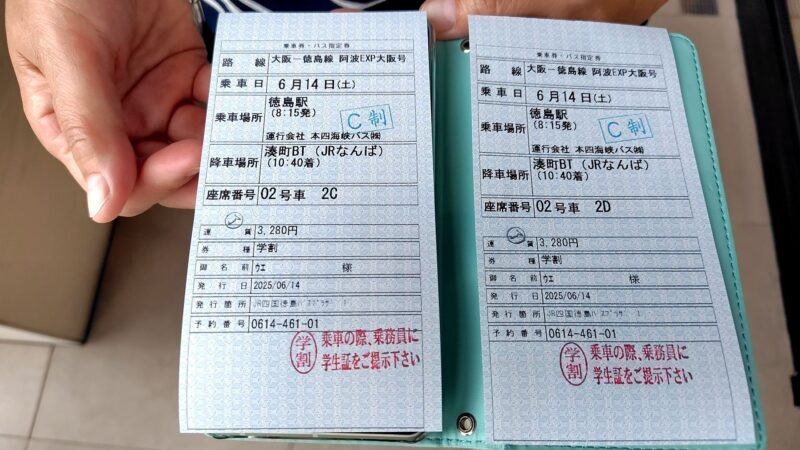 乗車券・バス指定券
路線 大阪－徳島線 阿波EXP大阪号
乗車日 6月14日(土)
乗車場所 徳島駅
(8:15発)
C制
運行会社 本四海峡バス㈱
降車場所 湊町BT (JRなんば)
(10:40着)
座席番号 02号車 2C
運賃 3,280円
券種 学割
御名前 ウエ 様
発行日 2025/06/14
発行箇所 JR四国徳島
予約番号 0614-461-01
学割
乗車の際、乗務員に
学生証をご提示下さい
乗車券・バス指定券
路線 大阪－徳島線 阿波EXP大阪号
乗車日 6月14日(土)
乗車場所 徳島駅
(8:15発)
C制
運行会社 本四海峡バス㈱
降車場所 湊町BT (JRなんば)
(10:40着)
座席番号 02号車 2D
運賃 3,280円
券種 学割
御名前 ウエ 様
発行日 2025/06/14
発行箇所 JR四国徳島
予約番号 0614-461-01
学割
乗車の際、乗務員に
学生証をご提示下さい